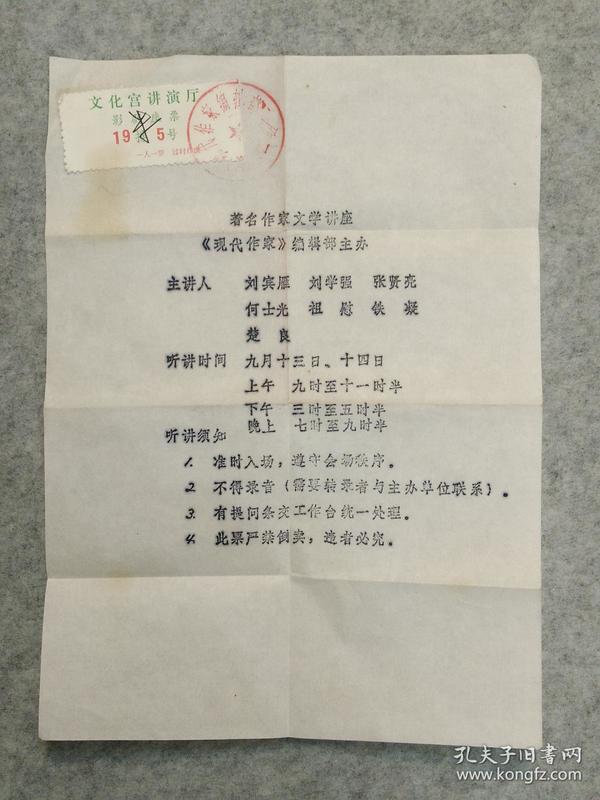 文化宫讲演厅
影 票
19 5号
一人一票
著名作家文学讲座
《现代作家》编辑部主办
主讲人 刘宾雁 刘学强 张贤亮
何士光 祖慰 铁凝
楚良
听讲时间 九月十三日、十四日
上午 九时至十一时半
下午 三时至五时半
晚上 七时至九时半
听讲须知
1. 准时入场，遵守会场秩序。
2. 不得录音（需要转录者与主办单位联系）。
3. 有提问条交工作台统一处理。
4. 此票严禁倒卖，违者必究。
孔夫子旧书网
www.kongfz.com